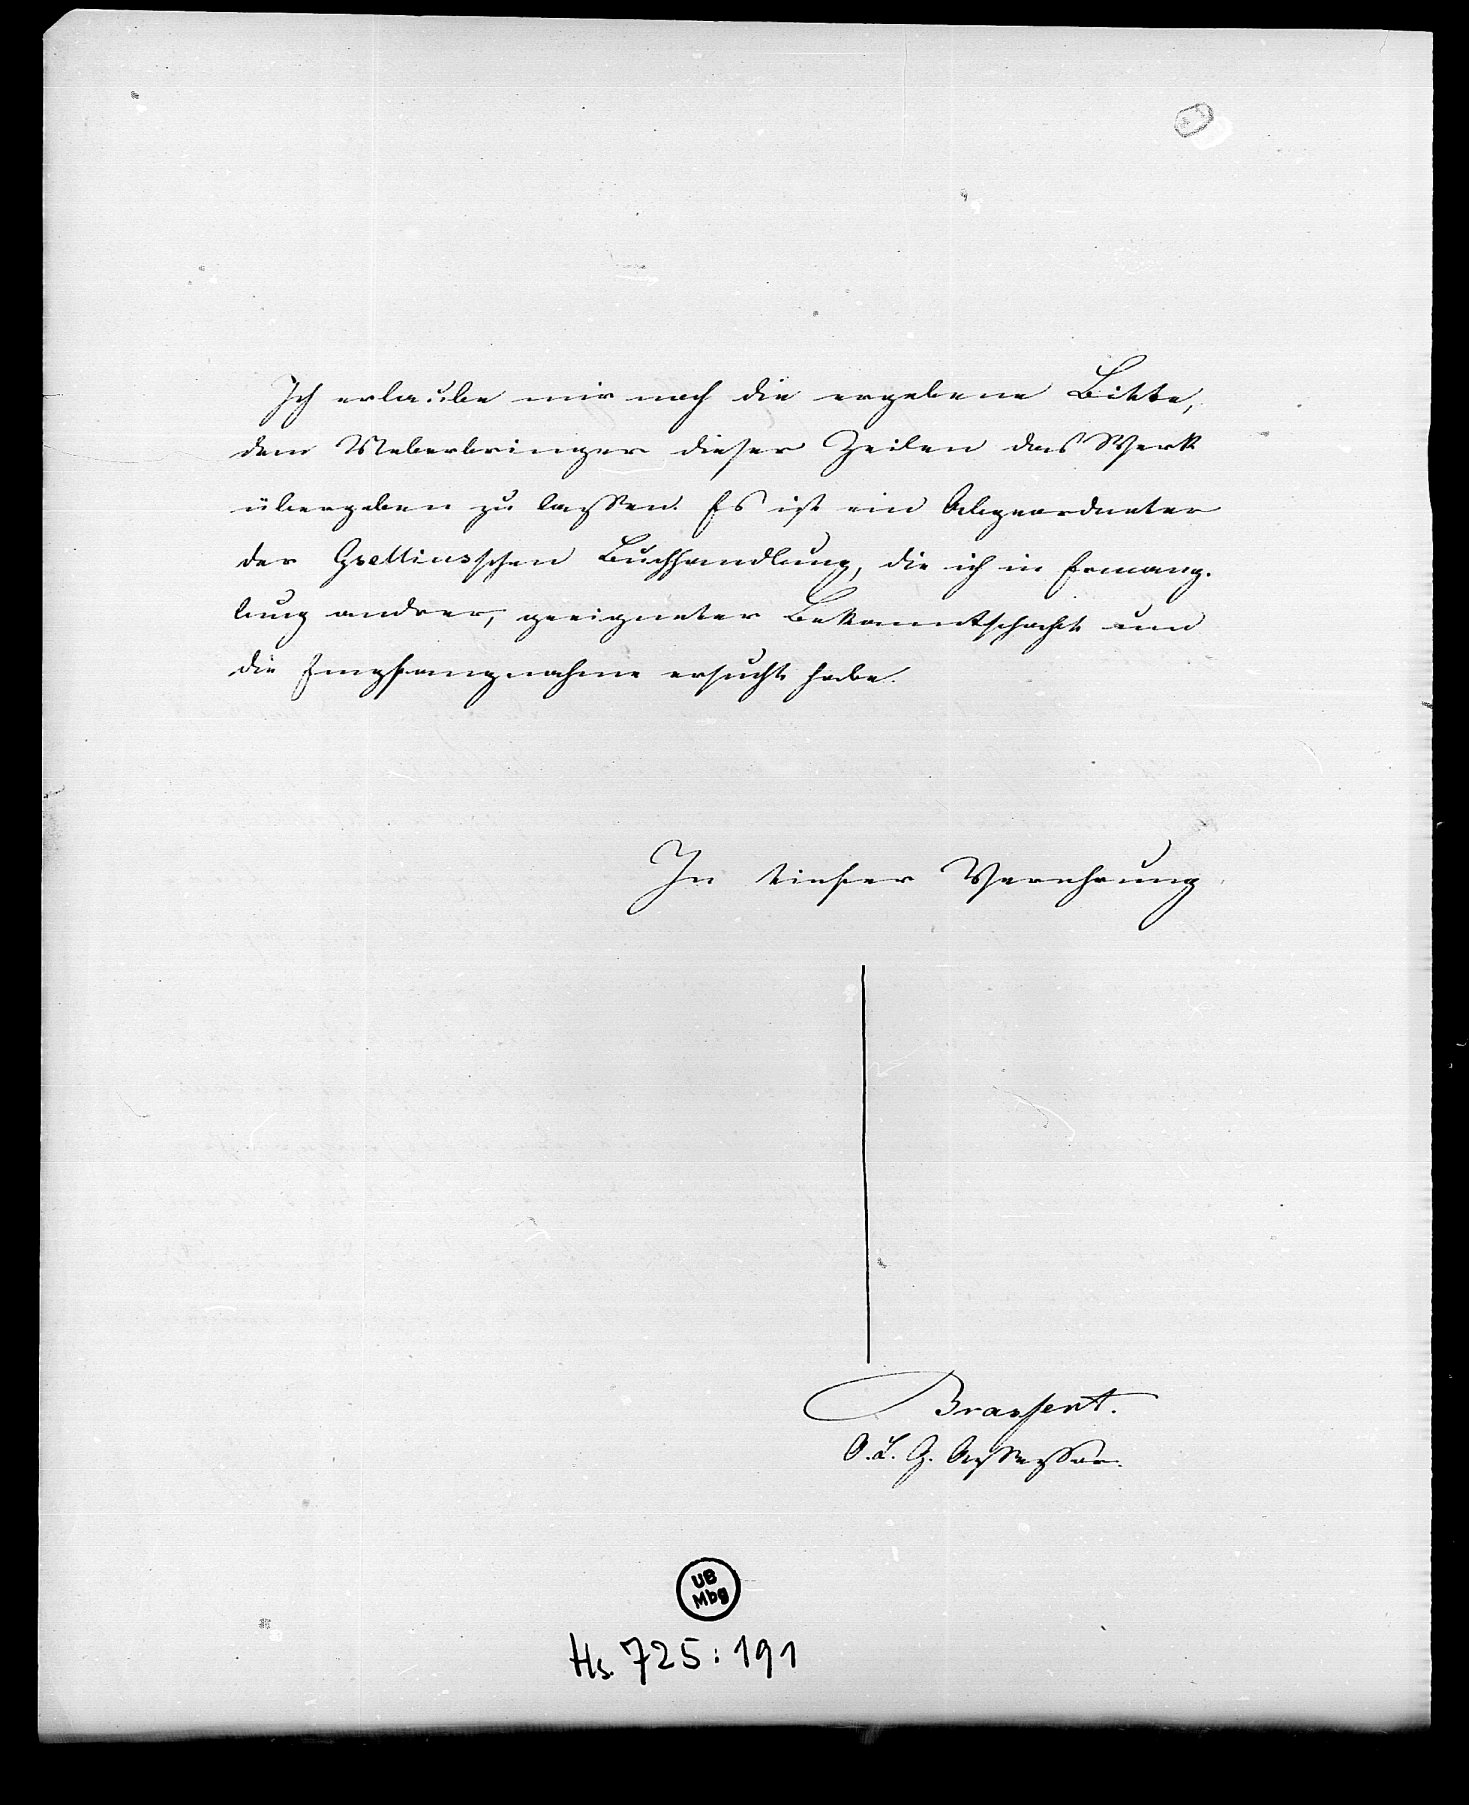 Ich erlaube mir noch die ergebene Bitte,
dem Ueberbringer dieser Zeilen das Werk
übergeben zu lassen. Es ist ein Abgeordneter
der Buchhandlung, die ich in Ermang-
lung andrer, geeigneter Bekanntschaft um
die Empfangnahme ersucht habe.
In tiefster Verehrung
O. L. G. Assessor.
UB
Mbg
Hs. 725:191